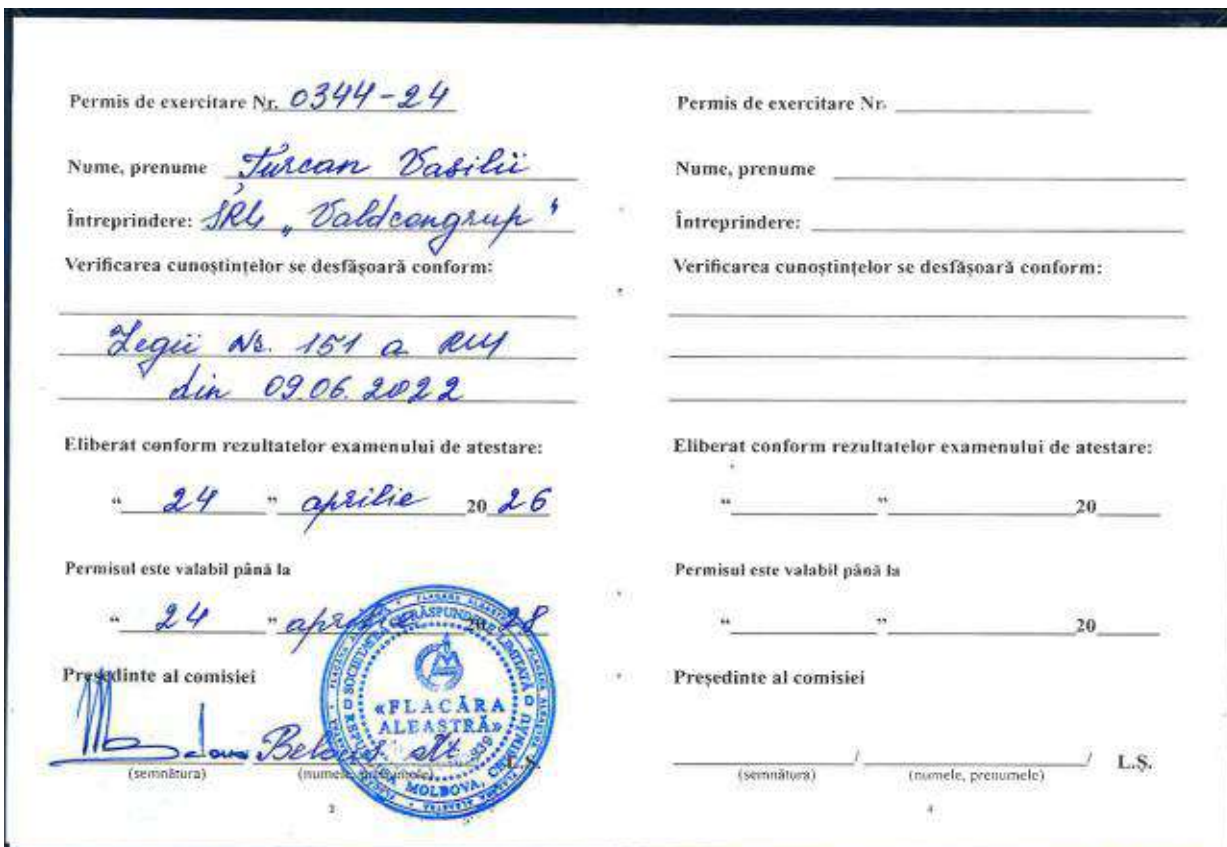 Permis de exercitare Nr. 0344-24
Nume, prenume Turcan Vasilii
Întreprindere: SRL „Valdcongrup"
Verificarea cunoștințelor se desfășoară conform:
Legii Nr. 151 a RM
din 09.06.2022
Eliberat conform rezultatelor examenului de atestare:
“ 24 ” aprilie 20 26
Permisul este valabil până la
“ 24 ” aprilie 20 28
Președinte al comisiei
Belous
(semnătura) (numele, prenumele) L.Ș.
SOCIETATEA CU RĂSPUNDERE LIMITATĂ
«FLACĂRA
ALBASTRĂ»
REPUBLICA MOLDOVA, CHIȘINĂU
3
Permis de exercitare Nr.
Nume, prenume
Întreprindere:
Verificarea cunoștințelor se desfășoară conform:
Eliberat conform rezultatelor examenului de atestare:
“ ” 20
Permisul este valabil până la
“ ” 20
Președinte al comisiei
/ / L.Ș.
(semnătura) (numele, prenumele)
4